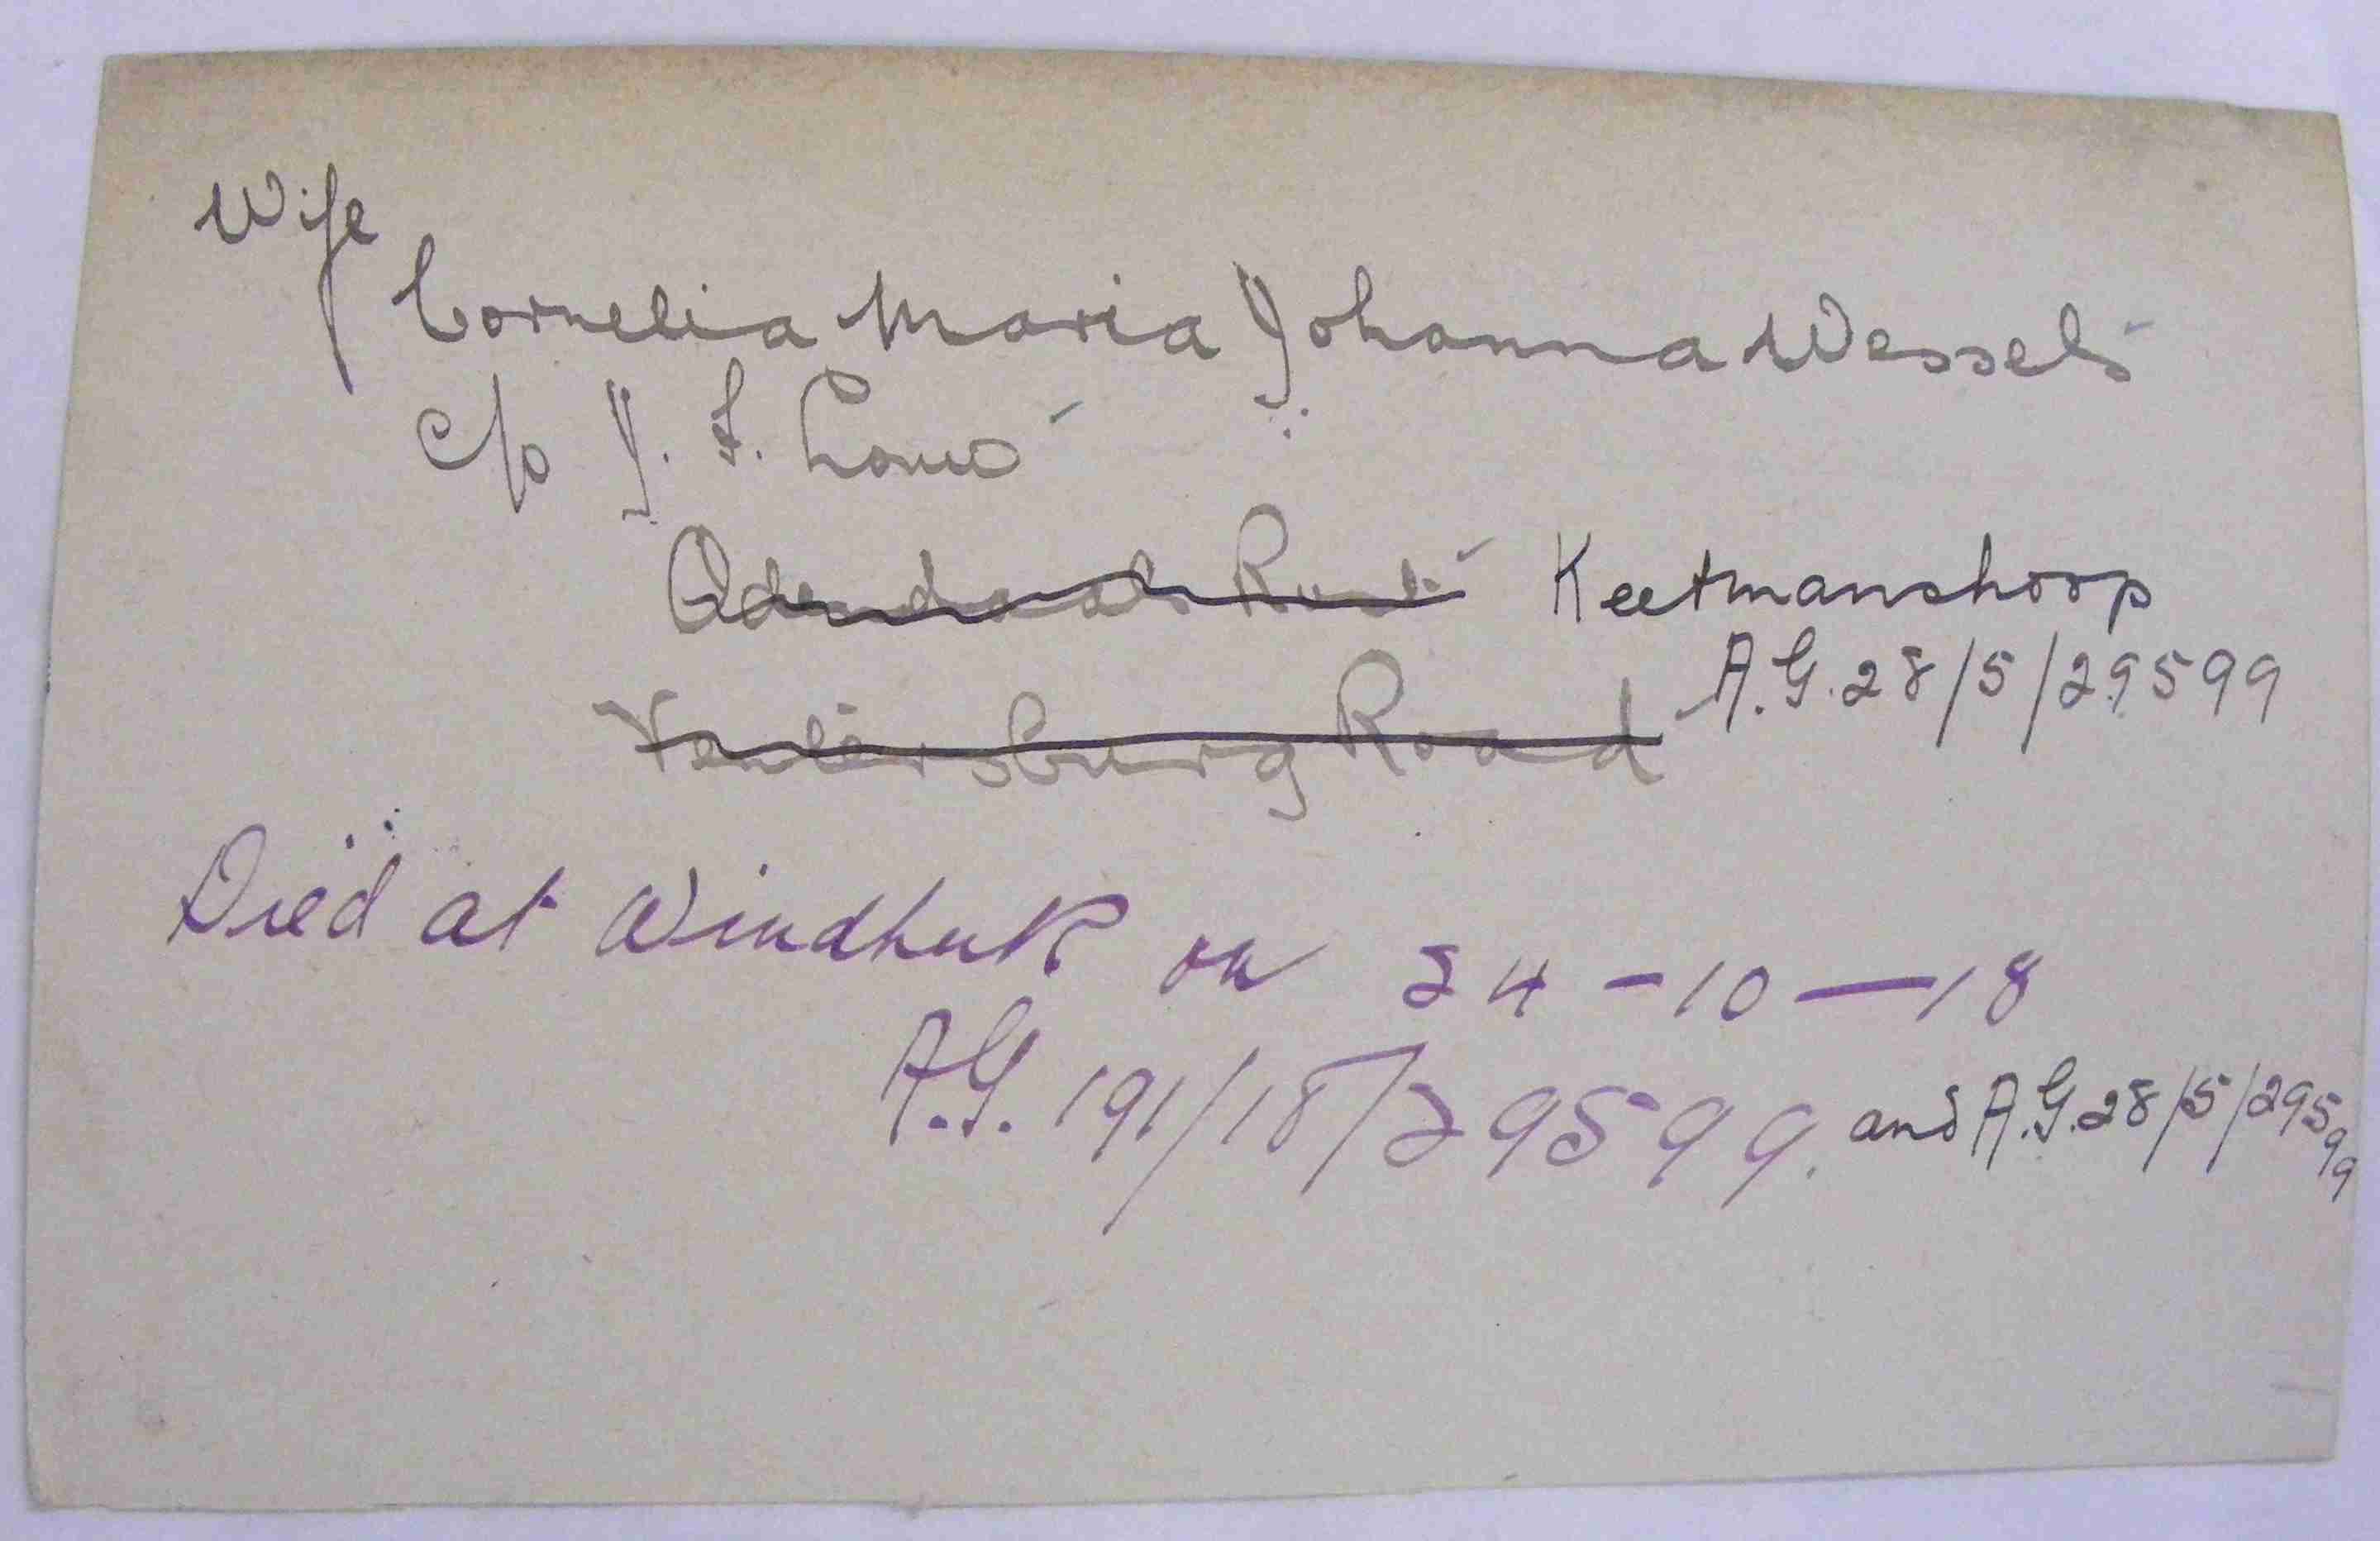 Wife
Cornelia Maria Johanna Wessels
c/o J. F. Louw
Adendorals Rust Keetmanshoop
A.G. 28/5/29599
Ventersburg Road
Died at Windhuk on 24-10-18
A.G. 191/18/29599. and A.G. 28/5/29599